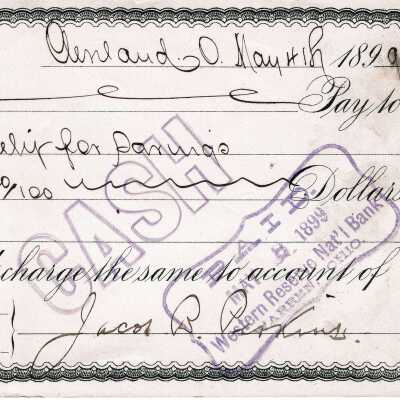 Cleveland O. May 4th 1899
Pay to
for Savings
0/100 Dollars
CASH
PAID
MAY 5 1899
Western Reserve Nat'l Bank
WARREN, OHIO.
charge the same to account of
Jacob B. Perkins.